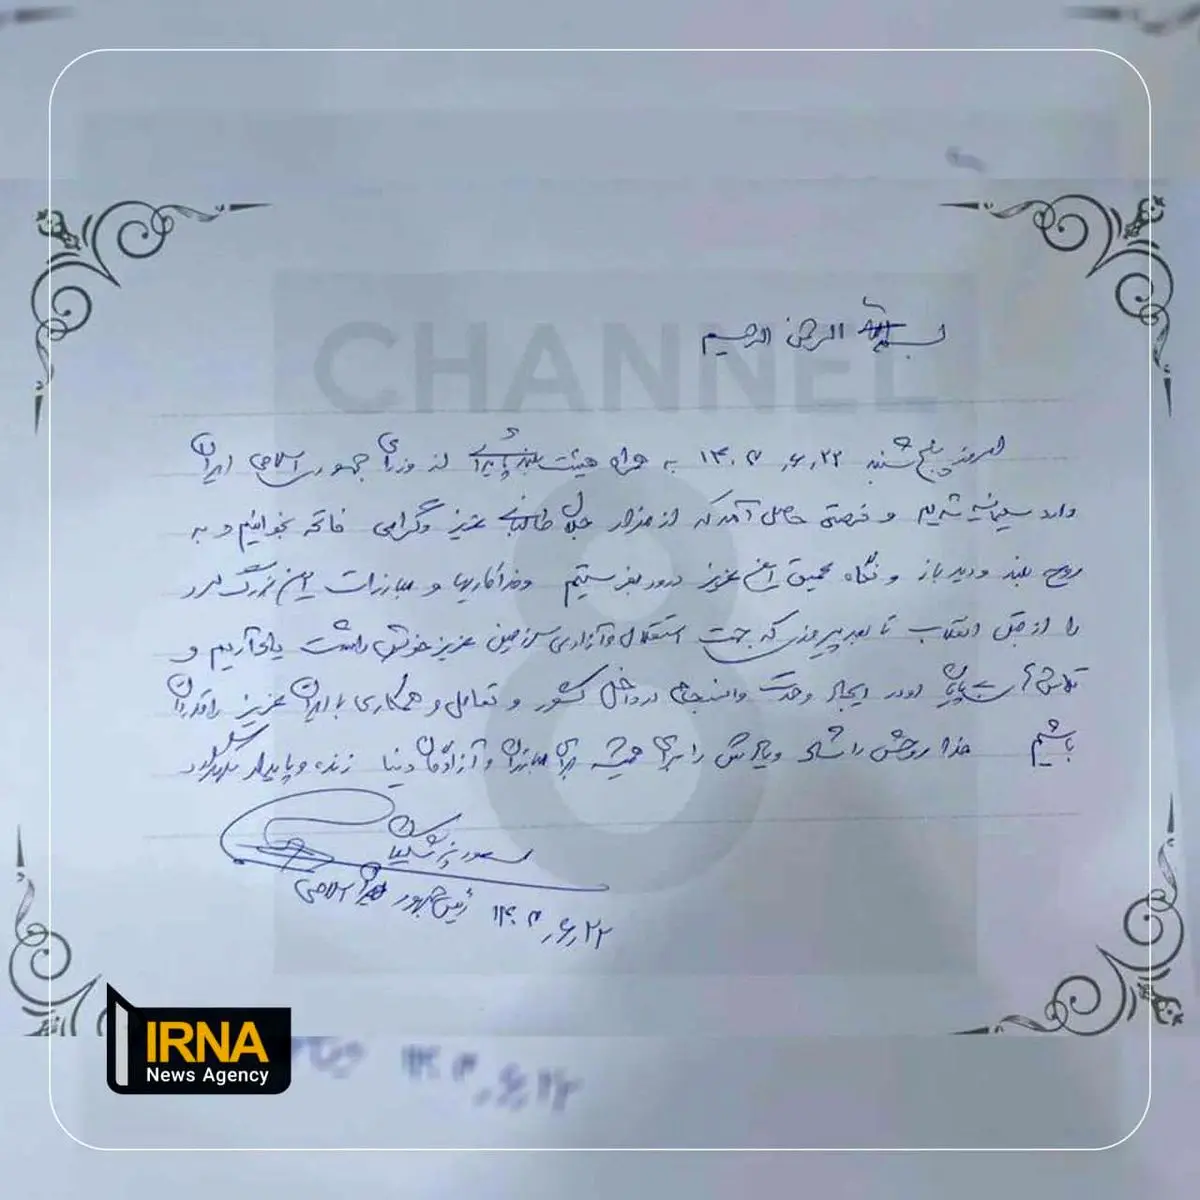 CHANNEL
8
بسم الله الرحمن الرحیم
امروز پنج شنبه ۱۴۰۳٫۶٫۲۲ به همراه هیئت بلند پایه‌ای از وزرای جمهوری اسلامی ایران
وارد سلیمانیه شدیم و فرصتی حاصل آمد که از مزار جلال طالبانی عزیز و گرامی فاتحه بخوانیم و به
روح بلند و دید باز و نگاه عمیق این عزیز درود بفرستیم و فداکاریها و مبارزات این بزرگ مرد
را از قبل انقلاب تا بعد پیروزی که جهت استقلال و آزادی سرزمین عزیز خویش داشت یاد آریم و
تلاش بی پایان او در ایجاد وحدت و انسجام در داخل کشور و تعامل و همکاری با ایران عزیز را قدردان
باشیم خدا روحش را شاد و یادش را برای همیشه برای مبارزان و آزادگان دنیا زنده و پایدار
مسعود پزشکیان
رئیس جمهور اسلامی
۱۴۰۳٫۶٫۲۲
IRNA
News Agency